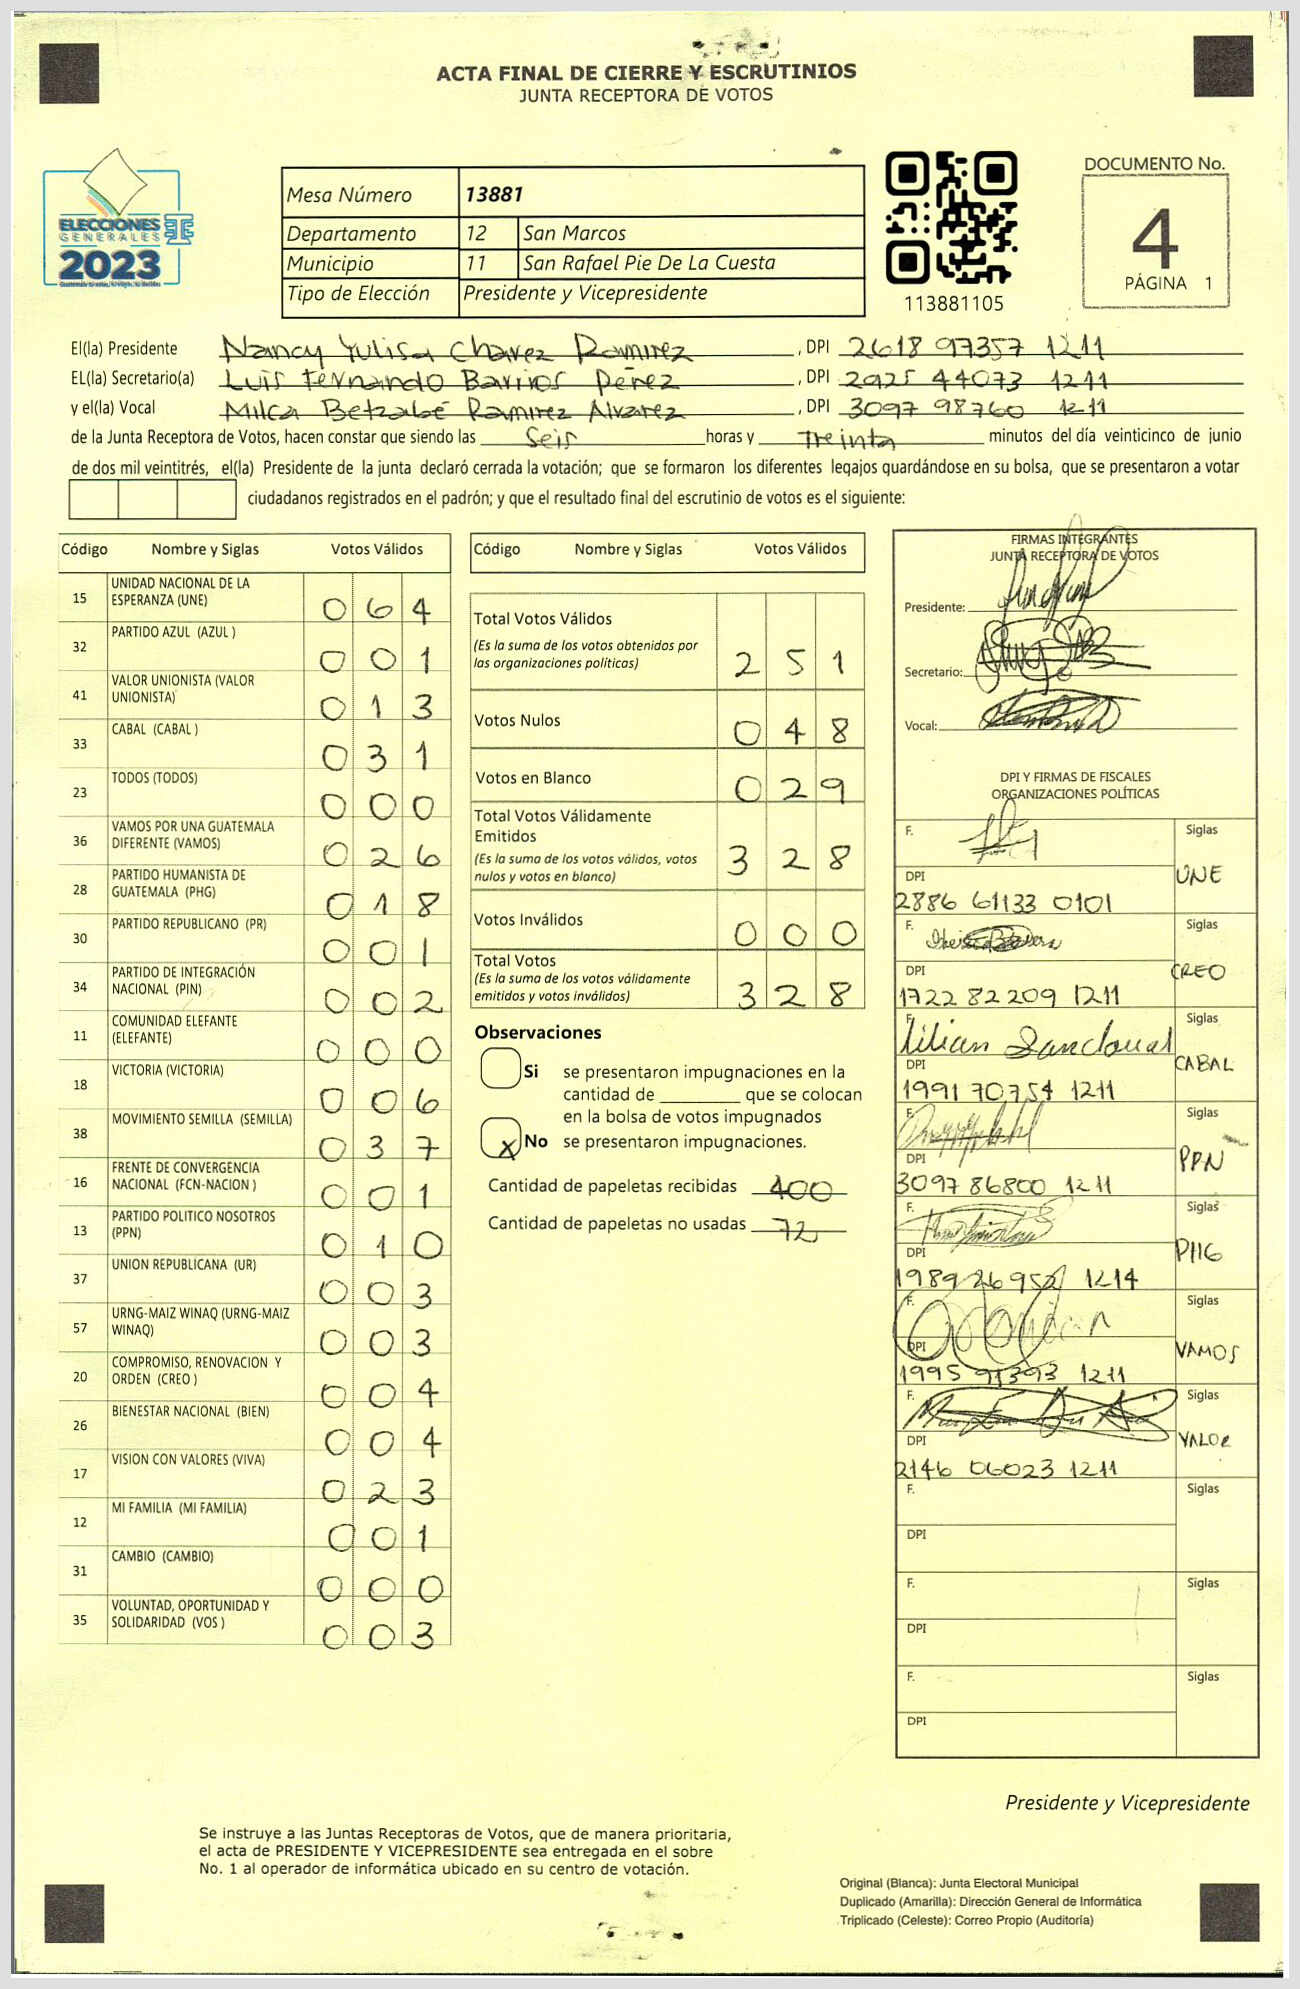 ACTA FINAL DE CIERRE Y ESCRUTINIOS
JUNTA RECEPTORA DE VOTOS
ELECCIONES
GENERALES
2023
Mesa Número 13881
Departamento 12 San Marcos
Municipio 11 San Rafael Pie De La Cuesta
Tipo de Elección Presidente y Vicepresidente
113881105
DOCUMENTO No.
4
PÁGINA 1
El(la) Presidente Nancy Yulisa Chavez Ramirez, DPI 2618 97357 1211
EL(la) Secretario(a) Luis Fernando Barrios Pérez, DPI 2925 44073 1211
y el(la) Vocal Milca Betzabé Ramirez Alvarez, DPI 3097 98760 1211
de la Junta Receptora de Votos, hacen constar que siendo las Seis horas y Treinta minutos del día veinticinco de junio
de dos mil veintitrés, el(la) Presidente de la junta declaró cerrada la votación; que se formaron los diferentes legajos guardándose en su bolsa, que se presentaron a votar
ciudadanos registrados en el padrón; y que el resultado final del escrutinio de votos es el siguiente:
Código Nombre y Siglas Votos Válidos
15 UNIDAD NACIONAL DE LA
ESPERANZA (UNE) 0 6 4
32 PARTIDO AZUL (AZUL ) 0 0 1
41 VALOR UNIONISTA (VALOR
UNIONISTA) 0 1 3
33 CABAL (CABAL ) 0 3 1
23 TODOS (TODOS) 0 0 0
36 VAMOS POR UNA GUATEMALA
DIFERENTE (VAMOS) 0 2 6
28 PARTIDO HUMANISTA DE
GUATEMALA (PHG) 0 1 8
30 PARTIDO REPUBLICANO (PR) 0 0 1
34 PARTIDO DE INTEGRACIÓN
NACIONAL (PIN) 0 0 2
11 COMUNIDAD ELEFANTE
(ELEFANTE) 0 0 0
18 VICTORIA (VICTORIA) 0 0 6
38 MOVIMIENTO SEMILLA (SEMILLA) 0 3 7
16 FRENTE DE CONVERGENCIA
NACIONAL (FCN-NACION ) 0 0 1
13 PARTIDO POLITICO NOSOTROS
(PPN) 0 1 0
37 UNION REPUBLICANA (UR) 0 0 3
57 URNG-MAIZ WINAQ (URNG-MAIZ
WINAQ) 0 0 3
20 COMPROMISO, RENOVACION Y
ORDEN (CREO ) 0 0 4
26 BIENESTAR NACIONAL (BIEN) 0 0 4
17 VISION CON VALORES (VIVA) 0 2 3
12 MI FAMILIA (MI FAMILIA) 0 0 1
31 CAMBIO (CAMBIO) 0 0 0
35 VOLUNTAD, OPORTUNIDAD Y
SOLIDARIDAD (VOS ) 0 0 3
Código Nombre y Siglas Votos Válidos
Total Votos Válidos
(Es la suma de los votos obtenidos por
las organizaciones políticas) 2 5 1
Votos Nulos 0 4 8
Votos en Blanco 0 2 9
Total Votos Válidamente
Emitidos
(Es la suma de los votos válidos, votos
nulos y votos en blanco) 3 2 8
Votos Inválidos 0 0 0
Total Votos
(Es la suma de los votos válidamente
emitidos y votos inválidos) 3 2 8
Observaciones
Si se presentaron impugnaciones en la
cantidad de ________ que se colocan
en la bolsa de votos impugnados
X No se presentaron impugnaciones.
Cantidad de papeletas recibidas 400
Cantidad de papeletas no usadas 72
FIRMAS INTEGRANTES
JUNTA RECEPTORA DE VOTOS
Presidente:
Secretario:
Vocal:
DPI Y FIRMAS DE FISCALES
ORGANIZACIONES POLÍTICAS
F. Siglas
DPI UNE
2886 61133 0101
F. Siglas
DPI CREO
1722 82209 1211
F. Lilian Sandoval Siglas
DPI CABAL
1991 70754 1211
F. Siglas
DPI PPN
3097 86800 1211
F. Siglas
DPI PHG
1989 26952 1214
F. Siglas
DPI VAMOS
1995 91393 1211
F. Siglas
DPI VALOR
2146 06023 1211
F. Siglas
DPI
F. Siglas
DPI
F. Siglas
DPI
Presidente y Vicepresidente
Se instruye a las Juntas Receptoras de Votos, que de manera prioritaria,
el acta de PRESIDENTE Y VICEPRESIDENTE sea entregada en el sobre
No. 1 al operador de informática ubicado en su centro de votación.
Original (Blanca): Junta Electoral Municipal
Duplicado (Amarilla): Dirección General de Informática
Triplicado (Celeste): Correo Propio (Auditoría)